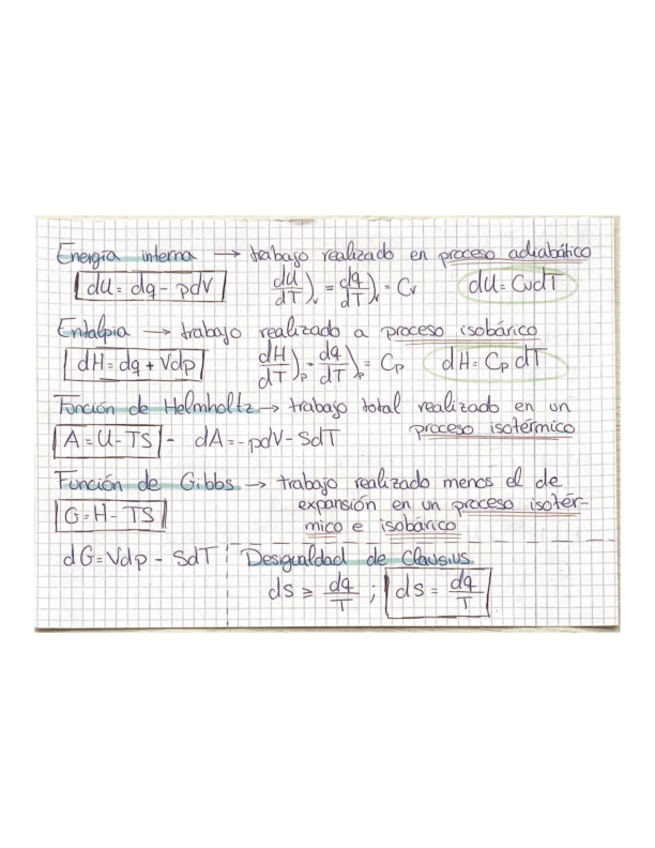 Energía interna → trabajo realizado en proceso adiabático
dU = dq - pdV   dU/dT)v = dq/dT)v = Cv   dU = CvdT
Entalpia → trabajo realizado a proceso isobárico
dH = dq + Vdp   dH/dT)p = dq/dT)p = Cp   dH = Cp dT
Función de Helmholtz → trabajo total realizado en un
proceso isotérmico
A = U - TS - dA = - pdV - SdT
Función de Gibbs → trabajo realizado menos el de
expansión en un proceso isotér-
mico e isobárico
G = H - TS
dG = Vdp - SdT
Desigualdad de Clausius
ds ≥ dq/T ; ds = dq/T